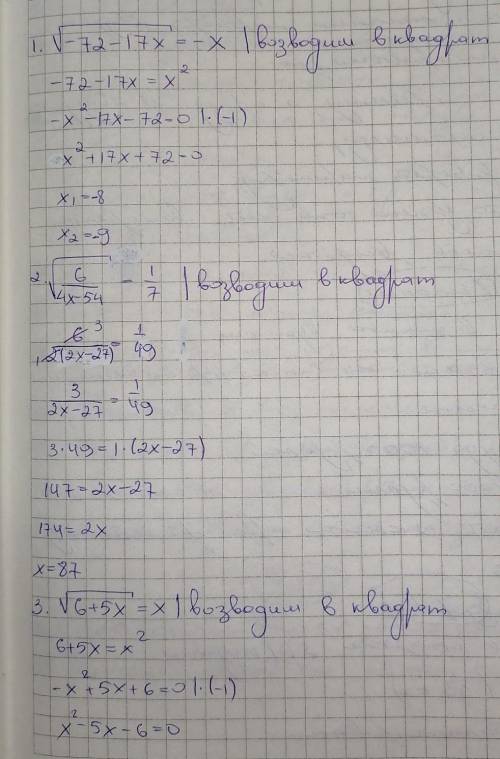 1. √-72-17x = -x | возводим в квадрат
-72-17x = x²
-x²-17x-72-0 |·(-1)
x²+17x+72-0
x₁=-8
x₂=-9
2. √6/(4x-54) - 1/7 | возводим в квадрат
6 3/1 2(2x-27) = 1/49
3/(2x-27) = 1/49
3·49=1·(2x-27)
147=2x-27
174=2x
x=87
3. √6+5x = x | возводим в квадрат
6+5x=x²
-x²+5x+6=0 |·(-1)
x²-5x-6=0